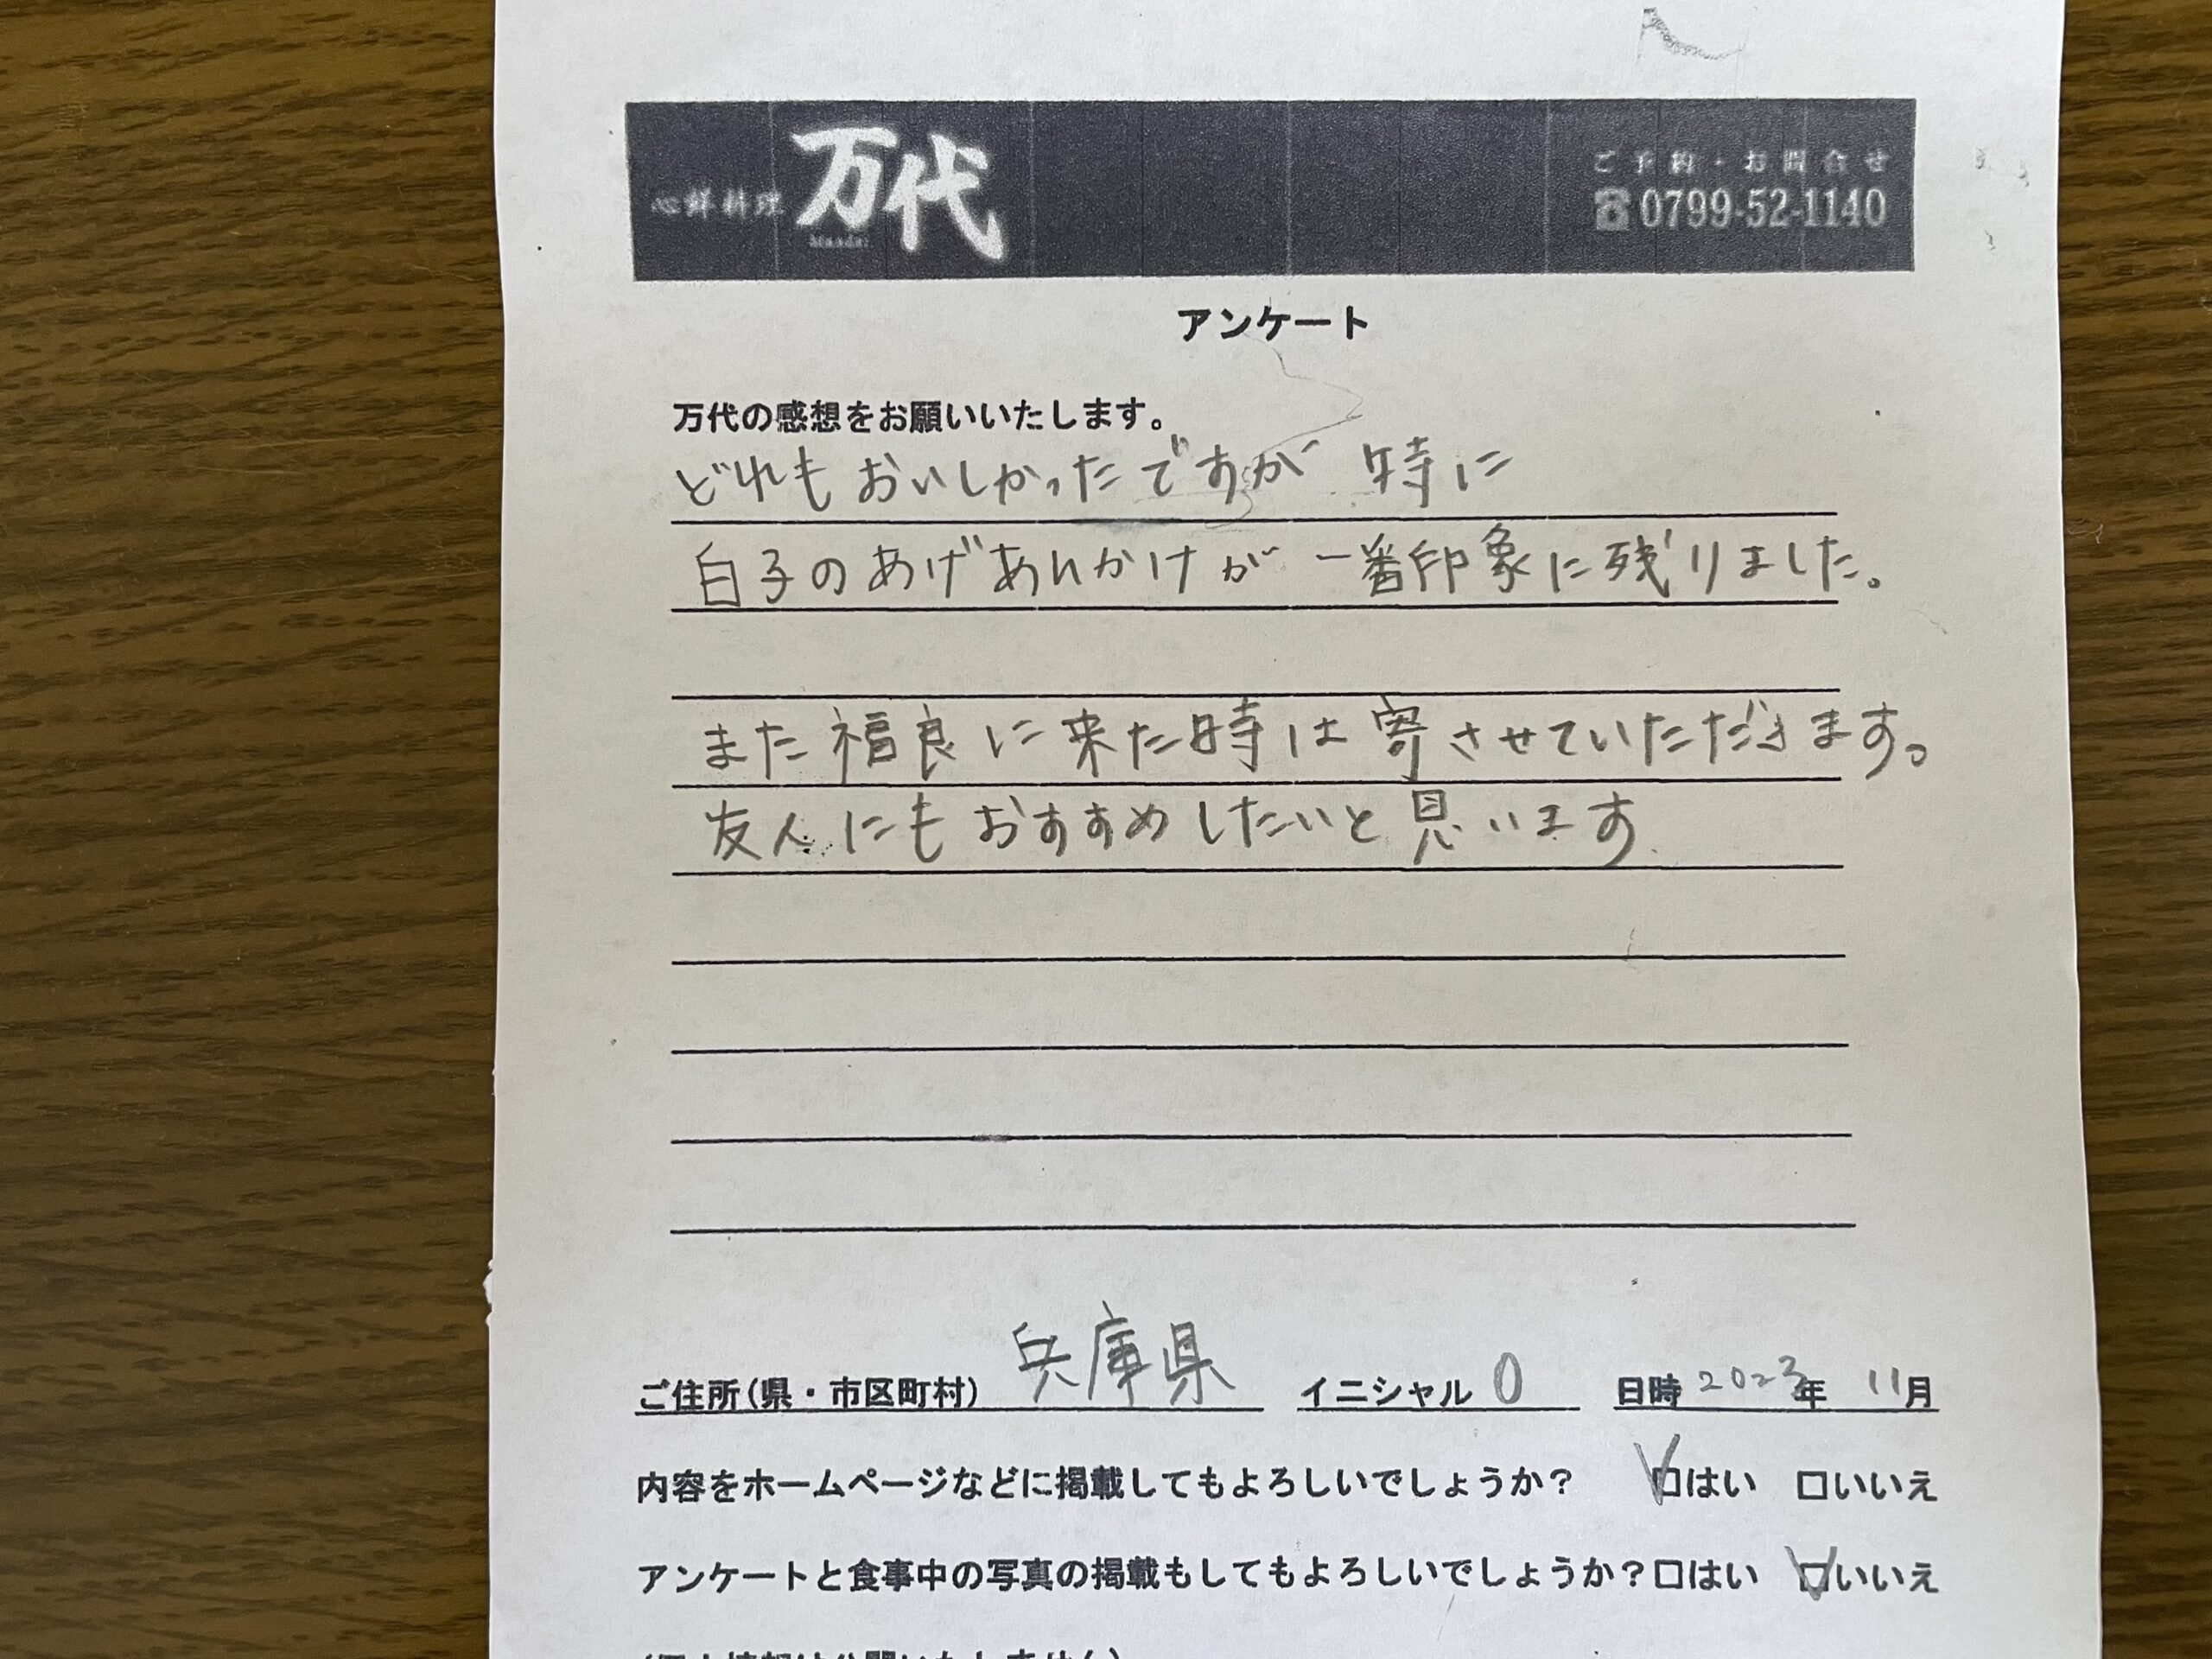 心鮮料理 万代
Mandai
ご予約・お問合せ
☎0799-52-1140
アンケート
万代の感想をお願いいたします。
どれもおいしかったですが 特に
白子のあげあんかけが 一番印象に残りました。
また福良に来た時は寄させていただきます。
友人にもおすすめしたいと思います
ご住所(県・市区町村) 兵庫県 イニシャル O 日時 2023年 11月
内容をホームページなどに掲載してもよろしいでしょうか? ☑はい □いいえ
アンケートと食事中の写真の掲載もしてもよろしいでしょうか?□はい ☑いいえ